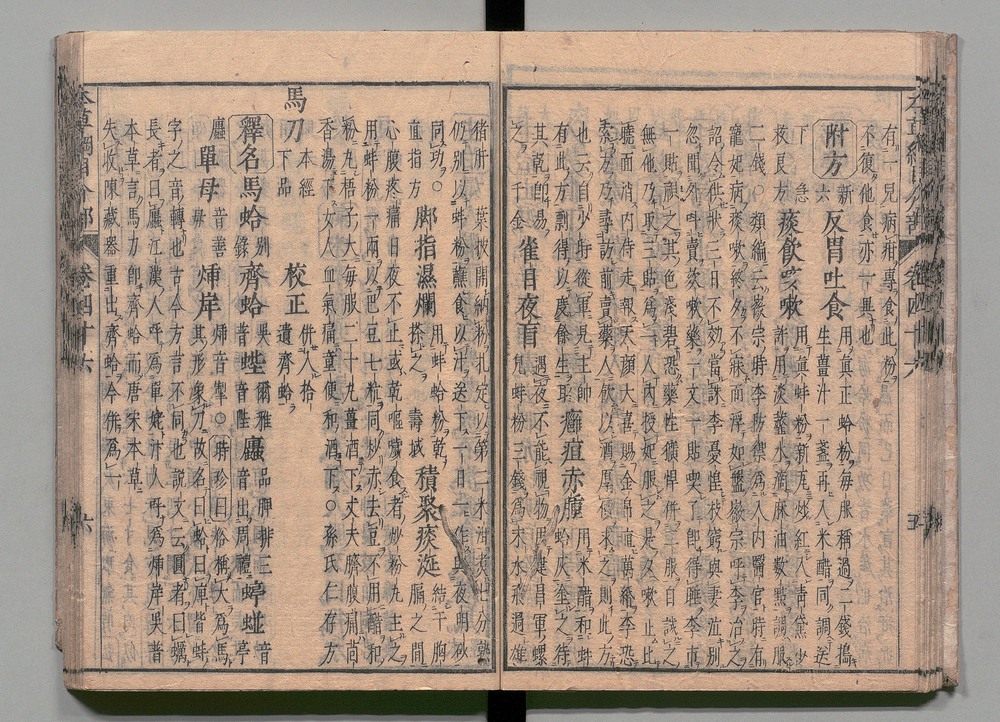 有一兒病疳專食此粉
不復他食亦一異也
附方 新六 反胃吐食 用真正蛤粉每服稱過二錢搗生薑汁一盞再入米醋同調送
下 急救良方 痰飲欬嗽 用真蚌粉新瓦炒紅入青黛少許用淡虀水滴麻油數點調服
二錢○類編云徽宗時李防禦為入内醫官時有
寵妃病痰嗽終夕不寐面浮如盤徽宗呼李治之
詔令供狀三日不效當誅李憂惶技窮與妻泣別
忽聞外叫賣欬嗽藥一文一貼喫了即得睡李市
一貼視之其色淺碧恐藥性獷悍併三服自試之
無他乃取三貼為一入内授妃服之是夕嗽止比
曉面消内侍走報天顏大喜賜金帛直萬緡李恐
索方乃尋訪前賣藥人飲以酒厚價求之則此方
也云自少時從軍見主帥
有此方剽得以度餘生耳 癰疽赤腫 用米醋和蚌蛤灰塗之待
其乾即易之 千金 雀目夜盲 遇夜不能視物用建昌軍螺兒蚌粉三錢為末水飛過雄
猪肝一葉披開納粉扎定以第二米泔煮七分熟
仍別以蚌粉蘸食以汁送下一日一作與夜明砂
同功○直指方 脚指濕爛 用蚌蛤粉乾搽之○壽域 積聚痰涎 結于胸膈之間
心腹疼痛日夜不止或乾嘔噦食者炒粉丸主之
用蚌粉一兩以巴豆七粒同炒赤去豆不用醋和
粉丸梧子大每服二十丸薑酒下丈夫臍腹痛茴
香湯下女人血氣痛童便和酒下○孫氏仁存方
馬刀 本經下品 校正 併入拾遺齊蛤
釋名 馬蛤 別錄 齊蛤 吳普 蜌 爾雅音陛 蠯 品脾排三音出周禮 蝏蚌 音亭
蠯 單母 音善母 𤍣岸 𤍣音掣○時珍曰俗稱大為馬其形象刀故名曰蛤曰蠯皆蚌
字之音轉也古今方言不同也說文云圓者曰蠣
長者曰蠯江漢人呼為單姥汴人呼為𤍣岸吳普
本草言馬刀即齊蛤而唐宋本草
失收陳藏器重出齊蛤今併為一
本草綱目介部 卷四十六 五
本草綱目介部 卷四十六 六